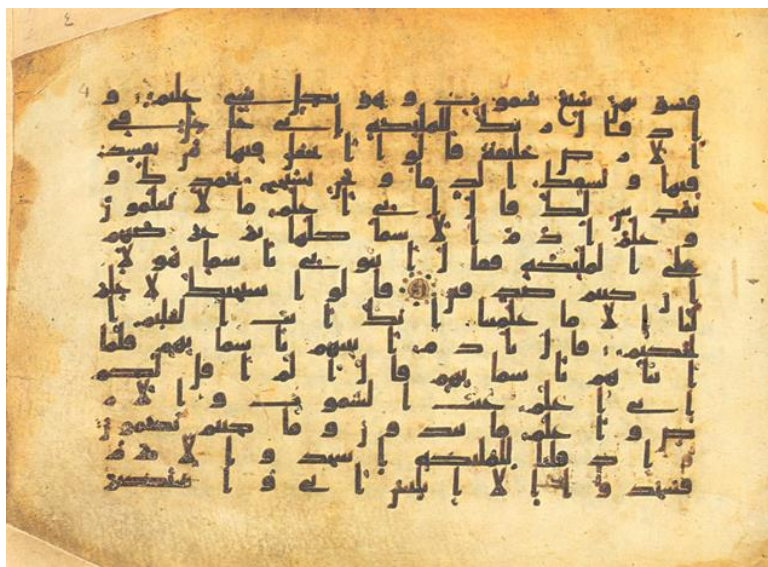 ٤
فسويهن سبع سموت و هو بكل شي عليم و
اذ قال ربك للملئكة اني جاعل في
الارض خليفة قالوا اتجعل فيها من يفسد
فيها و يسفك الدما و نحن نسبح بحمدك و
نقدس لك قال اني اعلم ما لا تعلمون
و علم ادم الاسما كلها ثم عرضهم
على الملئكة فقال انبوني باسما هولا
ان كنتم صدقين قالوا سبحنك لا علم
لنا الا ما علمتنا انك انت العليم ا
لحكيم قال يادم انبهم باسمايهم فلما
انباهم باسمايهم قال الم اقل لكم
اني اعلم غيب السموت و الار
ض و اعلم ما تبدون و ما كنتم تكتمون
و اذ قلنا للملئكة اسجدوا لادم
فسجدوا الا ابليس ابى و استكبر